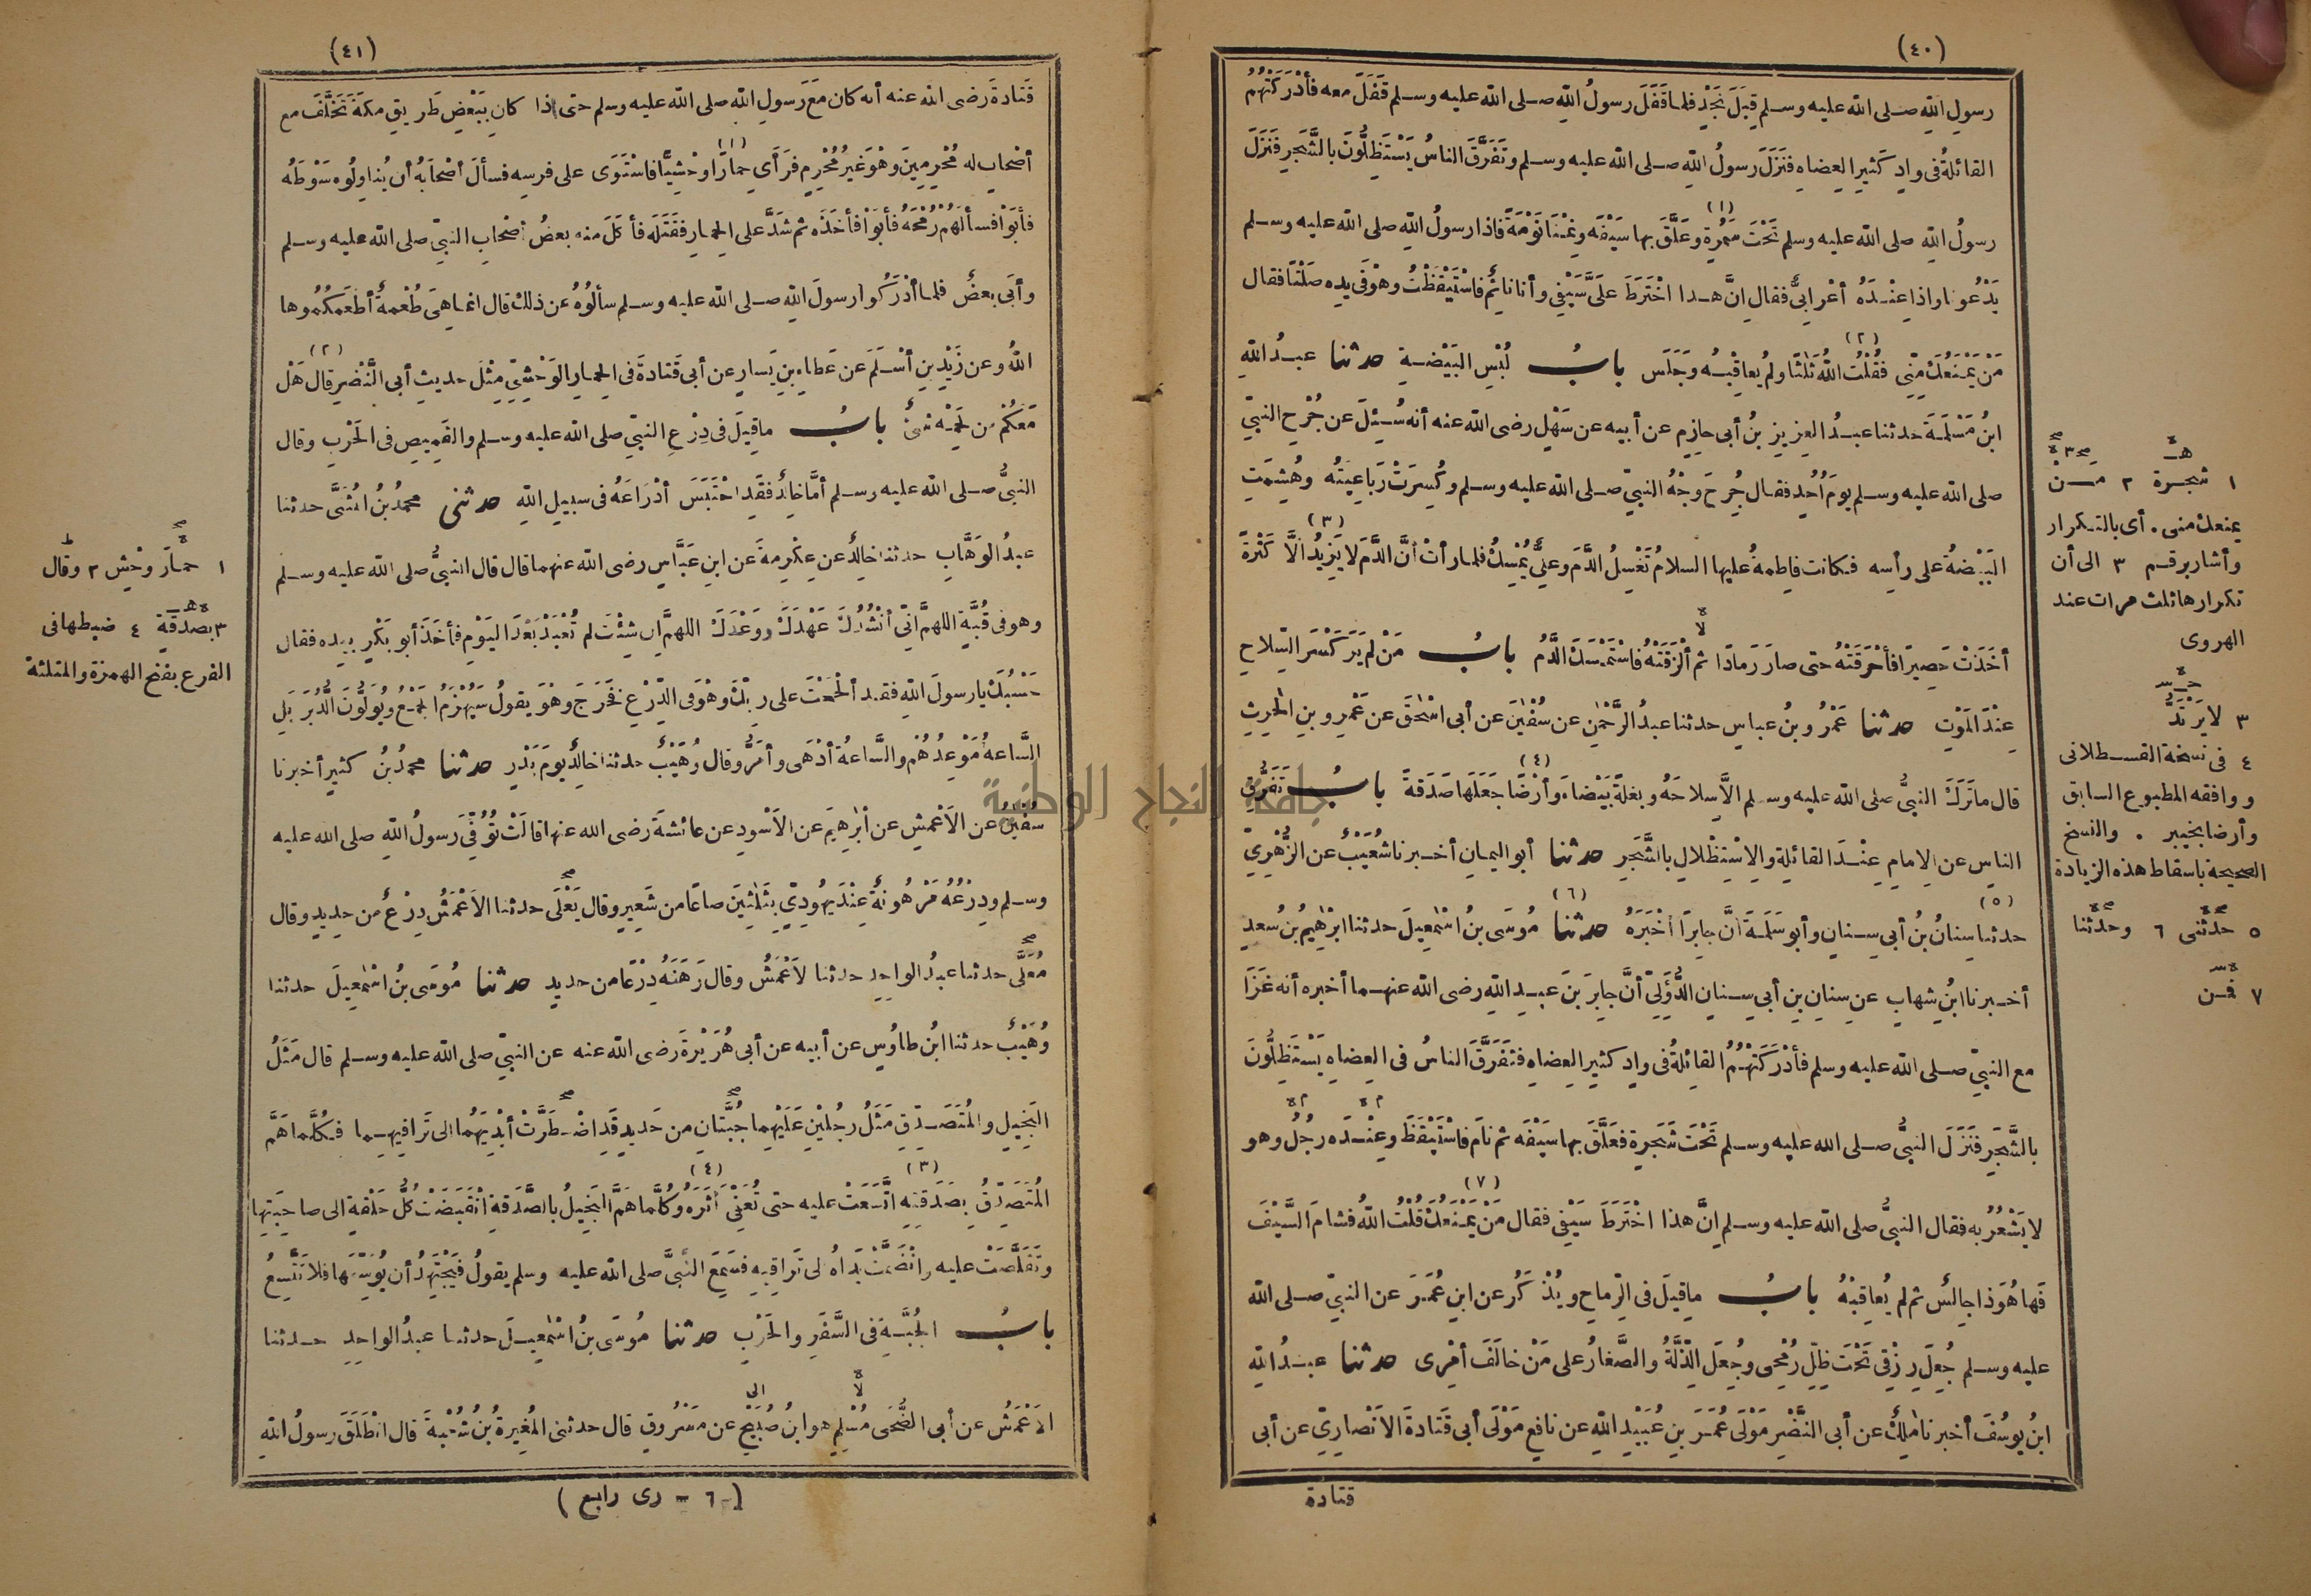 (٤٠)
رسولِ اللهِ صلى الله عليه وسلم قِبَلَ نَجْدٍ فلما قَفَلَ رسولُ اللهِ صلى الله عليه وسلم قَفَلَ معه فأَدْرَكَتْهُمُ
القائلةُ فى وادٍ كَثيرِ العِضاهِ فنَزَلَ رسولُ اللهِ صلى الله عليه وسلم وتَفَرَّقَ الناسُ يَسْتَظِلُّونَ بالشَّجَرِ فنَزَلَ
رسولُ اللهِ صلى الله عليه وسلم تَحْتَ سَمُرَةٍ (١) وعَلَّقَ بها سَيْفَه ونِمْنَا نَوْمَةً فاذا رسولُ اللهِ صلى الله عليه وسلم
يَدْعُونا واذا عِنْدَهُ أعْرابىٌّ فقال انَّ هذا اخْتَرَطَ عَلَىَّ سَيْفى وأنا نائمٌ فاسْتَيْقَظْتُ وهْوَ فى يدِه صَلْتًا فقال
مَنْ يَمْنَعُكَ مِنِّى (٢) فقُلْتُ اللهُ ثَلٰثًا ولم يُعاقِبْه وجَلَسَ بابُ لُبْسِ البَيْضةِ حدثنا عبدُ اللهِ
ابنُ مَسْلَمَةَ حدثنا عبدُ العزيزِ بنُ أبى حازِمٍ عن أبيه عن سَهْلٍ رضى الله عنه أنه سُئِلَ عن جُرْحِ النبىِّ
صلى الله عليه وسلم يومَ أُحُدٍ فقال جُرِحَ وجْهُ النبىِّ صلى الله عليه وسلم وكُسِرَتْ رَباعِيَتُه وهُشِمَتِ
البَيْضةُ على رأسِه فكانت فاطمةُ عليها السلامُ تَغْسِلُ الدَّمَ وعلىٌّ يُمْسِكُ فلما رأتْ أنَّ الدَّمَ لا يَزِيدُ (٣) الَّا كَثْرةً
أخَذَتْ حَصِيرًا فأحْرَقَتْهُ حتى صارَ رَمادًا ثم ألْزَقَتْهُ فاسْتَمْسَكَ الدَّمُ بابُ مَنْ لم يَرَ كَسْرَ السِّلاحِ
عِنْدَ المَوْتِ حدثنا عَمْرُو بنُ عباسٍ حدثنا عبدُ الرَّحْمٰنِ عن سُفْيٰنَ عن أبى اسْحٰقَ عن عَمْرِو بنِ الحٰرِثِ
قال ما تَرَكَ النبىُّ صلى الله عليه وسلم الَّا سِلاحَهُ وبغلةً بَيْضاءَ وأرْضًا (٤) جَعَلَها صَدَقةً بابُ تَفَرُّقِ
الناسِ عن الامامِ عِنْدَ القائلةِ والاسْتِظْلالِ بالشَّجَرِ حدثنا أبو اليمانِ أخبرنا شُعَيْبٌ عن الزُّهْرِىِّ
حدثنا (٥) سِنانُ بنُ أبى سِنانٍ وأبو سَلَمةَ أنَّ جابرًا أخْبَرَهُ حدثنا (٦) مُوسَى بنُ اسْمٰعِيلَ حدثنا ابرٰهِيمُ بنُ سعدٍ
أخبرنا ابنُ شهابٍ عن سِنانِ بنِ أبى سِنانٍ الدُّؤَلِىِّ أنَّ جابِرَ بنَ عبدِ اللهِ رضى الله عنهما أخبره أنه غَزَا
مع النبىِّ صلى الله عليه وسلم فأدْرَكَتْهُمُ القائِلةُ فى وادٍ كثيرِ العِضاهِ فتَفَرَّقَ الناسُ فى العِضاهِ يَسْتَظِلُّونَ
بالشَّجَرِ فنَزَلَ النبىُّ صلى الله عليه وسلم تَحْتَ شَجَرةٍ فعَلَّقَ بها سَيْفَه ثم نامَ فاسْتَيْقَظَ وعِنْدَه رجُلٌ وهو
لا يَشْعُرُ به فقال النبىُّ صلى الله عليه وسلم انَّ هذا اخْتَرَطَ سَيْفى فقال مَنْ (٧) يَمْنَعُكَ قُلْتُ اللهُ فشامَ السَّيْفَ
فَها هُوَ ذا جالِسٌ ثم لم يُعاقِبْهُ بابُ ما قيلَ فى الرِّماحِ ويُذْكَرُ عن ابنِ عُمَرَ عن النبىِّ صلى الله
عليه وسلم جُعِلَ رِزْقى تَحْتَ ظِلِّ رُمْحى وجُعِلَ الذِّلَّةُ والصَّغارُ على مَنْ خالَفَ أمْرى حدثنا عبدُ اللهِ
ابنُ يوسُفَ أخبرنا مٰلِكٌ عن أبى النَّضْرِ مَوْلَى عُمَرَ بنِ عُبَيْدِ اللهِ عن نافعٍ مَوْلَى أبى قَتادةَ الاَنْصارِىِّ عن أبى
قتادة
١ شجرة ٢ من
يمنعك منى . أى بالتكرار
وأشار برقم ٣ الى أن
تكرارها ثلث مرات عند
الهروى
٣ لا يَرْتَدُّ
٤ فى نسخة القسطلانى
ووافقه المطبوع السابق
وأرضا بخيبر . والنسخ
الصحيحة باسقاط هذه الزيادة
٥ حدّثنى ٦ وحدّثنا
٧ فمن
(٤١)
قَتادةَ رضى الله عنه أنه كان مَعَ رسولِ اللهِ صلى الله عليه وسلم حتى اذا كان بِبَعْضِ طَرِيقِ مكةَ تَخَلَّفَ مع
أصْحابٍ له مُحْرِمِينَ وهْوَ غَيْرُ مُحْرِمٍ فرَأَى حِمارًا (١) وحْشِيًّا فاسْتَوَى على فرسِه فسألَ أصْحابَهُ أن يُناوِلُوه سَوْطَهُ
فأبَوْا فسألَهُمْ رُمْحَهُ فأبَوْا فأخَذَه ثم شَدَّ على الحمارِ فقَتَلَه فأكَلَ منه بعضُ أصْحابِ النبىِّ صلى الله عليه وسلم
وأبَى بعضٌ فلما أدْرَكُوا رسولَ اللهِ صلى الله عليه وسلم سألُوهُ عن ذلك قال انما هىَ طُعْمةٌ أطْعَمَكُمُوها
اللهُ وعن زَيْدِ بنِ أسْلَمَ عن عَطاءِ بنِ يَسارٍ عن أبى قَتادةَ فى الحِمارِ الوَحْشِىِّ مِثْلَ حديثِ أبى النَّضْرِ قال (٢) هَلْ
مَعَكُمْ من لَحْمِه شىْءٌ بابُ ما قيلَ فى دِرْعِ النبىِّ صلى الله عليه وسلم والقَمِيصِ فى الحَرْبِ وقال
النبىُّ صلى الله عليه وسلم أمَّا خالِدٌ فقَدِ احْتَبَسَ أدْرَاعَهُ فى سبيلِ اللهِ حدثنى محمدُ بنُ المُثَنَّى حدثنا
عبدُ الوَهَّابِ حدثنا خالِدٌ عن عِكْرِمةَ عن ابنِ عَبَّاسٍ رضى الله عنهما قال قال النبىُّ صلى الله عليه وسلم
وهو فى قُبَّةٍ اللهمَّ انِّى أنْشُدُكَ عَهْدَكَ ووَعْدَكَ اللهمَّ ان شِئْتَ لم تُعْبَدْ بَعْدَ اليَوْمِ فأخَذَ أبو بَكْرٍ بيدِه فقال
حَسْبُكَ يا رسولَ اللهِ فقد ألْحَحْتَ على رَبِّكَ وهْوَ فى الدِّرْعِ فخَرَجَ وهْوَ يقولُ سَيُهْزَمُ الجَمْعُ ويُوَلُّونَ الدُّبُرَ بَلِ
السَّاعةُ مَوْعِدُهُمْ والسَّاعةُ أدْهَى وأمَرُّ وقال وُهَيْبٌ حدثنا خالِدٌ يومَ بَدْرٍ حدثنا محمدُ بنُ كثيرٍ أخبرنا
سُفْيٰنُ عن الاَعْمَشِ عن ابْرٰهِيمَ عن الاَسْودِ عن عائشةَ رضى الله عنها قالَتْ تُوُفِّىَ رسولُ اللهِ صلى الله عليه
وسلم ودِرْعُهُ مَرْهُونَةٌ عِنْدَ يهُودِىٍّ بِثَلٰثِينَ صاعًا من شَعِيرٍ وقال يَعْلَى حدثنا الاَعْمَشُ دِرْعٌ من حدِيدٍ وقال
مُعَلًّى حدثنا عبدُ الواحِدِ حدثنا الاَعْمَشُ وقال رَهَنَهُ دِرْعًا من حديدٍ حدثنا مُوسَى بنُ اسْمٰعِيلَ حدثنا
وُهَيْبٌ حدثنا ابنُ طاوُسٍ عن أبيه عن أبى هُرَيْرةَ رضى الله عنه عن النبىِّ صلى الله عليه وسلم قال مَثَلُ
البَخِيلِ والمُتَصَدِّقِ مَثَلُ رجُلَيْنِ عَلَيْهِما جُبَّتانِ من حَديدٍ قَدِ اضْطَرَّتْ أيْدِيَهُما الى تَرَاقِيهِما فكُلَّما هَمَّ
المُتَصَدِّقُ بِصَدَقتِه (٣) اتَّسَعَتْ عليه حتى تُعَفِّىَ أثَرَهُ (٤) وكُلَّما هَمَّ البَخِيلُ بالصَّدَقةِ انْقَبَضَتْ كُلُّ حَلْقةٍ الى صاحِبَتِها
وتَقَلَّصَتْ عليه وانْضَمَّتْ يَدَاهُ الى تَراقِيهِ فسَمِعَ النبىَّ صلى الله عليه وسلم يقولُ فيَجْتَهِدُ أن يُوَسِّعَها فلا تَتَّسِعُ
بابُ الجُبَّةِ فى السَّفَرِ والحَرْبِ حدثنا مُوسَى بنُ اسْمٰعِيلَ حدثنا عبدُ الواحِدِ حدثنا
الاَعْمَشُ عن أبى الضُّحَى مُسْلِمٍ هو ابنُ صُبَيْحٍ عن مَسْرُوقٍ قال حدثنى المُغِيرةُ بنُ شُعْبةَ قال انْطَلَقَ رسولُ اللهِ
(٦ - رى رابع)
١ حمارَ وحْشٍ ٢ وقال
٣ بصدقةٍ ٤ ضبطها فى
الفرع بفتح الهمزة والمثلثة
جامعة النجاح الوطنية